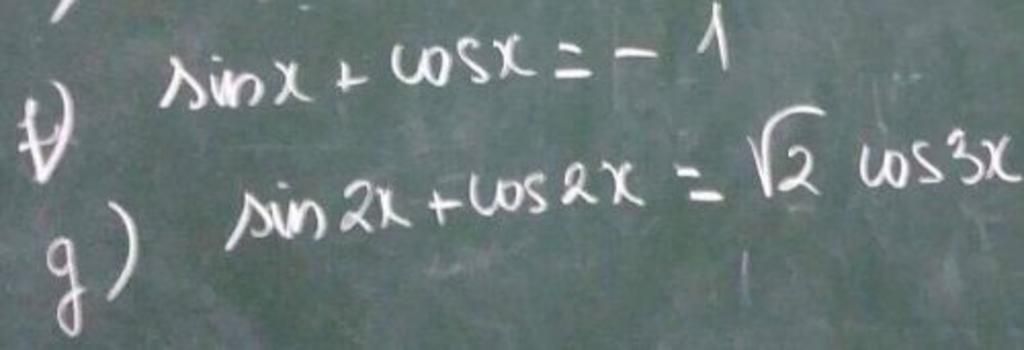 f) sinx + cosx = - 1
g) sin 2x + cos 2x = √2 cos 3x